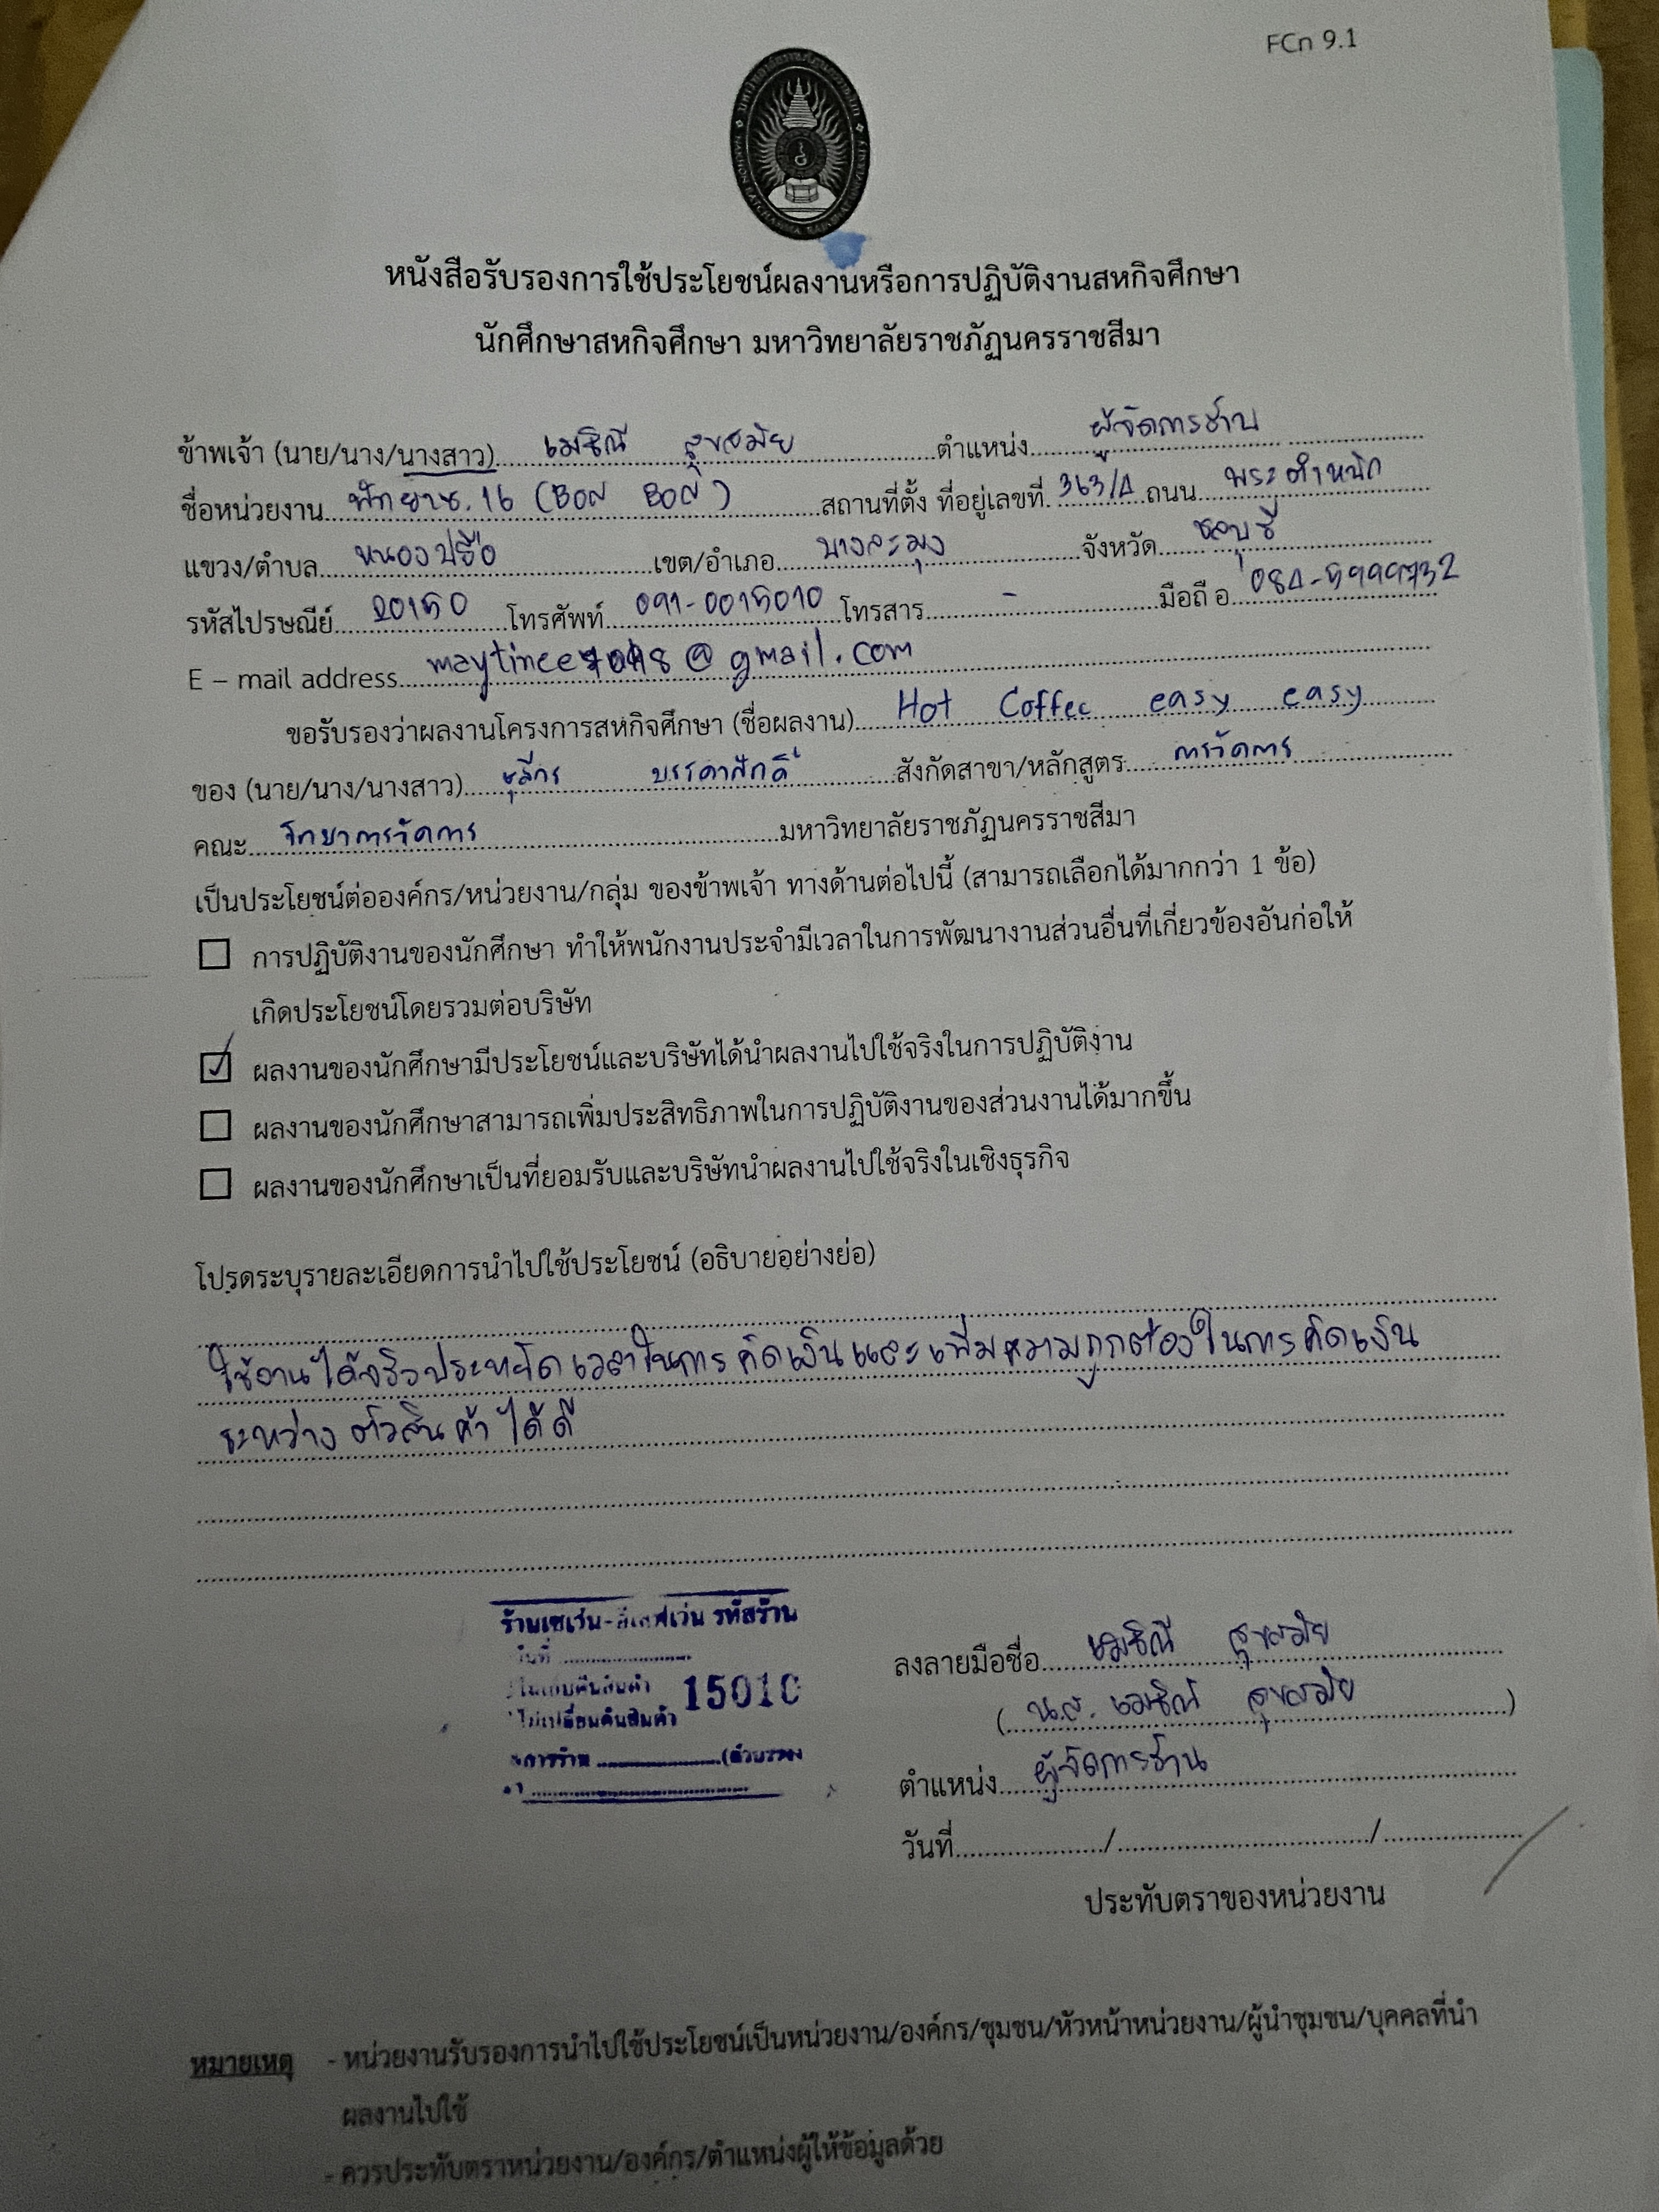 FCก 9.1
หนังสือรับรองการใช้ประโยชน์ผลงานหรือการปฏิบัติงานสหกิจศึกษา
นักศึกษาสหกิจศึกษา มหาวิทยาลัยราชภัฏนครราชสีมา
ข้าพเจ้า (นาย/นาง/นางสาว) เมธิณี สุขสมัย ตำแหน่ง ผู้จัดการร้าน
ชื่อหน่วยงาน พัทยาซ.16 (BON BON) สถานที่ตั้ง ที่อยู่เลขที่ 363/4 ถนน พระตำหนัก
แขวง/ตำบล หนองปรือ เขต/อำเภอ บางละมุง จังหวัด ชลบุรี
รหัสไปรษณีย์ 20150 โทรศัพท์ 091-0015010 โทรสาร - มือถือ 084-5999732
E – mail address @gmail.com
ขอรับรองว่าผลงานโครงการสหกิจศึกษา (ชื่อผลงาน) Hot Coffee easy easy
ของ (นาย/นาง/นางสาว) ชุลีกร บรรดาศักดิ์ สังกัดสาขา/หลักสูตร การจัดการ
คณะ วิทยาการจัดการ มหาวิทยาลัยราชภัฏนครราชสีมา
เป็นประโยชน์ต่อองค์กร/หน่วยงาน/กลุ่ม ของข้าพเจ้า ทางด้านต่อไปนี้ (สามารถเลือกได้มากกว่า 1 ข้อ)
การปฏิบัติงานของนักศึกษา ทำให้พนักงานประจำมีเวลาในการพัฒนางานส่วนอื่นที่เกี่ยวข้องอันก่อให้
เกิดประโยชน์โดยรวมต่อบริษัท
ผลงานของนักศึกษามีประโยชน์และบริษัทได้นำผลงานไปใช้จริงในการปฏิบัติงาน
ผลงานของนักศึกษาสามารถเพิ่มประสิทธิภาพในการปฏิบัติงานของส่วนงานได้มากขึ้น
ผลงานของนักศึกษาเป็นที่ยอมรับและบริษัทนำผลงานไปใช้จริงในเชิงธุรกิจ
โปรดระบุรายละเอียดการนำไปใช้ประโยชน์ (อธิบายอย่างย่อ)
ใช้งานได้จริงประหยัดเวลาในการคิดเงินและเพิ่มความถูกต้องในการคิดเงิน
ระหว่างตัวสินค้าได้ดี
ร้านเซเว่น-อีเลฟเว่น รหัสร้าน
วันที่
15010
ไม่เปลี่ยนคืนสินค้า
ลงลายมือชื่อ เมธิณี สุขสมัย
(น.ส. เมธิณี สุขสมัย)
ตำแหน่ง ผู้จัดการร้าน
วันที่ / /
ประทับตราของหน่วยงาน
หมายเหตุ - หน่วยงานรับรองการนำไปใช้ประโยชน์เป็นหน่วยงาน/องค์กร/ชุมชน/หัวหน้าหน่วยงาน/ผู้นำชุมชน/บุคคลที่นำ
ผลงานไปใช้
- ควรประทับตราหน่วยงาน/องค์กร/ตำแหน่งผู้ให้ข้อมูลด้วย